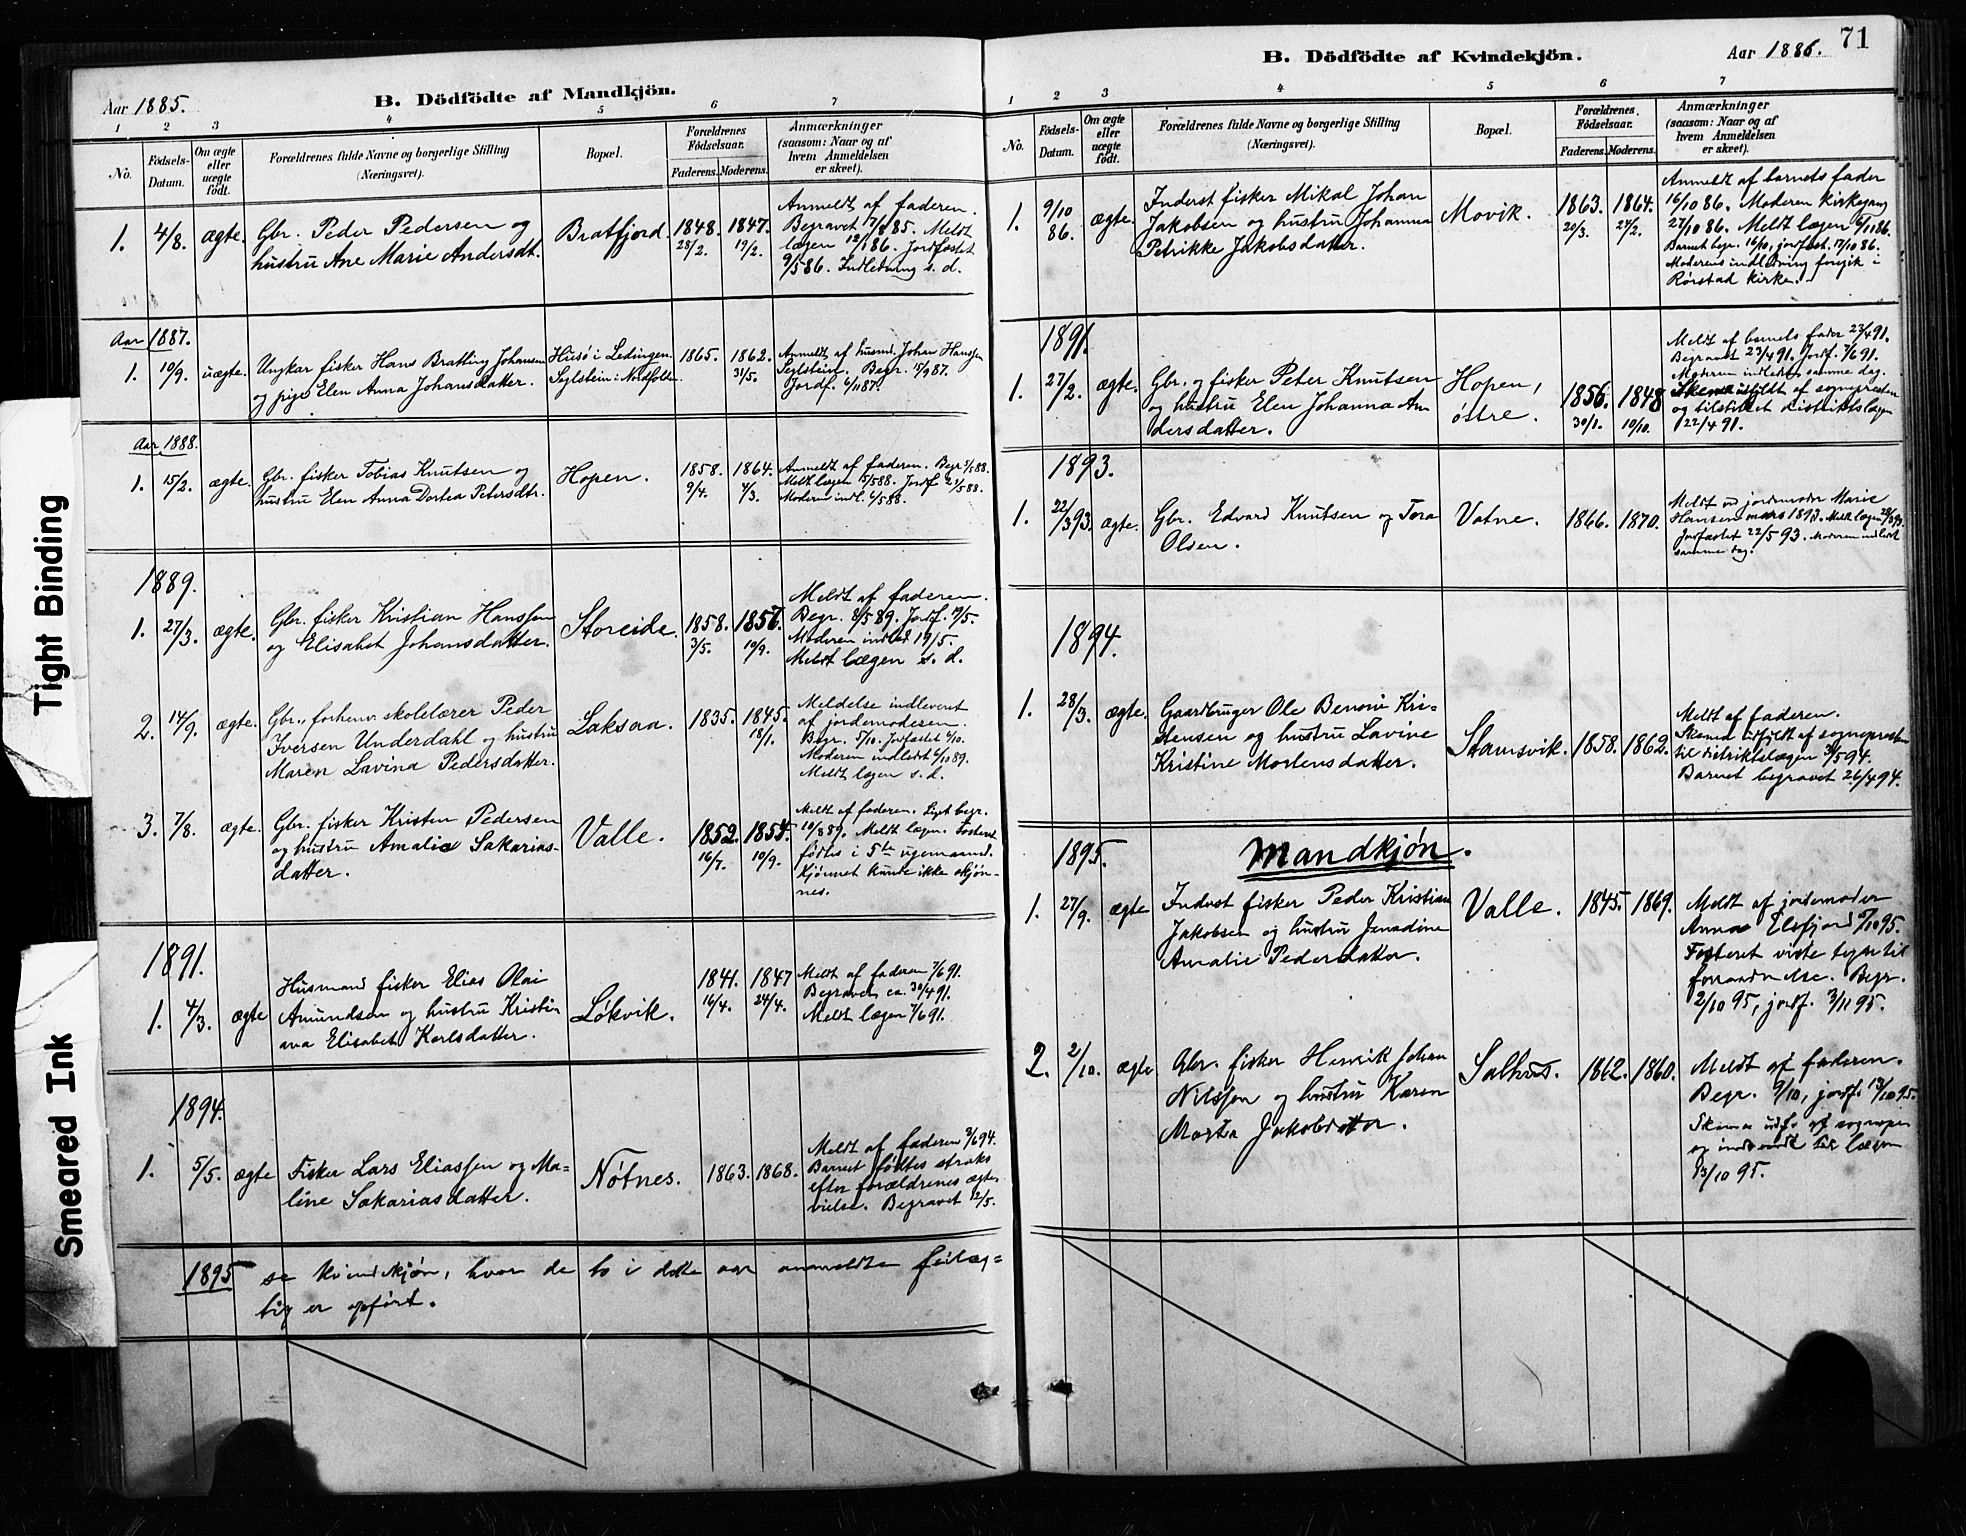 Tight Binding
Smeared Ink
Aar 1885.
B. Dödfödte af Mandkjön.
1 2 3 4 5 6 7
No.
Födsels-
Datum.
Om ægte
eller
uægte
födt.
Forældrenes fulde Navne og borgerlige Stilling
(Næringsvei).
Bopæl.
Forældrenes
Födselsaar.
Faderens. Moderens.
Anmærkninger
(saasom: Naar og af
hvem Anmeldelsen
er skeet).
1. 4/8. ægte. Gbr. Peder Pedersen og
hustru Ane Marie Andersdt.
Bratfjord. 1848. 1847.
28/2. 19/2.
Anmeldt af faderen.
Begravet 17/8 85. Meldt
lægen 12/1 86. Jordfæstet
9/5 86. Indledning s. d.
Aar 1887.
1. 10/9. uægte. Ungkar fisker Hans Bratling Johansen
og pige Elen Anna Johansdatter.
Husö i Ledingen.
Seglstein i Nordfolden.
1865. 1862.
31/5.
Anmeldt af husmd. Johan Hanssen
Seglstein. Begr. 15/9 87.
Jordf. 6/11 87.
Aar 1888.
1. 15/2. ægte. Gbr. fisker Tobias Knutsen og
hustru Elen Anna Dortea Petersdtr.
Hopen. 1858. 1864.
9/4. 4/3.
Anmeldt af faderen. Begr.
Meldt lægen 15/5 88. Jordf. 2/5 88.
Moderen indl. 6/5 88.
1889.
1. 27/3. ægte. Gbr. fisker Kristian Hanssen
og Elisabet Johansdatter.
Storeide. 1858. 1856.
3/5. 10/9.
Meldt af faderen.
Begr. 8/5 89. Jordf. 19/5.
Moderen indled. 19/5.
Meldt lægen s. d.
2. 14/9. ægte. Gbr., forhenv. skolelærer Peder
Iversen Underdahl og hustru
Maren Lavina Pedersdatter.
Laksaa. 1835. 1845.
18/1.
Meldelse indleveret
af jordemoderen.
Begr. 5/10. Jordfæstet 6/10.
Moderen indledt 6/10 89.
Meldt lægen s. d.
3. 7/8. ægte. Gbr. fisker Kristen Pedersen
og hustru Amalie Sakarias-
datter.
Valle. 1852. 1854.
16/7. 10/9.
Meldt af faderen. Liget begr.
10/8 89. Meldt lægen. Fosteret
födtes i 5te ugemaaned.
Kjönnet kunde ikke skjøn-
nes.
1891.
1. 4/3. ægte Husmand fisker Elias Olai
Amundsen og hustru Kristin
ava Elisabet Karlsdatter.
Løkvik. 1841. 1847
16/4. 24/4.
Meldt af faderen 7/6 91.
Begravet ca. 30/4 91.
Meldt lægen 7/6 91.
1894.
1. 5/5. ægte Fisker Lars Eliassen og Ma-
line Sakariasdatter.
Nøtnes. 1863. 1868.
Meldt af faderen 3/6 94.
Barnet fødtes straks
efter forældrenes ægte-
vielse. Begravet 12/5.
1895 se Kvindekjøn, hvor de to i dette aar anmeldte feilag-
tig er opført.
71
B. Dödfödte af Kvindekjön.
Aar 1886.
1 2 3 4 5 6 7
No.
Födsels-
Datum.
Om ægte
eller
uægte
födt.
Forældrenes fulde Navne og borgerlige Stilling
(Næringsvei).
Bopæl.
Forældrenes
Födselsaar.
Faderens. Moderens.
Anmærkninger
(saasom: Naar og af
hvem Anmeldelsen
er skeet).
1. 9/10 86. ægte. Inderst fisker Mikal Johan
Jakobsen og hustru Johanna
Petrikke Jakobsdatter.
Movik. 1863. 1864.
20/3. 24/2.
Anmeldt af barnets fader
16/10 86. Moderen kirkegang
27/10 86. Meldt lægen 6/11 86.
Barnet begr. 16/10, jordfæst. 17/10 86.
Moderens indledning foregik i
Rørstad kirke.
1891.
1. 27/2. ægte. Gbr. og fisker Peter Knutsen
og hustru Elen Johanna An
dersdatter.
Hopen,
østre.
1856. 1848
30/1. 10/10.
Meldt af barnets fader 23/4 91.
Begravet 23/4 91. Jordf. 7/6 91.
Moderen indledt samme dag.
Skema udfyldt af sognepresten
og tilstillet distriktslægen
22/4 91.
1893.
1. 22/3 93. ægte. Gbr. Edvard Knutsen og Tora
Olsen.
Vatne. 1866. 1870.
Meldt v. jordemoder Marie
Hansen mars 1893. Meldt lægen 28/3 93.
Jordfæstet 22/5 93. Moderen indledt
samme dag.
1894.
1. 28/3. ægte. Gaardbruger Ole Benoni Kri-
stensen og hustru Lavine
Kristine Mortensdatter.
Stamsvik. 1858. 1862.
Meldt af faderen.
Skema udfyldt af sognepresten
til distriktslægen 3/5 94.
Barnet begravet 26/4 94.
1895. Mandkjøn.
1. 27/9. ægte Inderst fisker Peder Kristian
Jakobsen og hustru Jenadine
Amalie Pedersdatter.
Valle. 1845. 1869.
Meldt af jordemoder
Anna Elsfjord 5/10 95.
Fosteret viste tegn til
forraadnelse. Begr.
2/10 95, jordf. 3/11 95.
2. 2/10. ægte Gbr. fisker Henrik Johan
Nilssen og hustru Karen
Marta Jakobsdatter.
Salhus. 1862. 1860.
Meldt af faderen.
Begr. 9/10, jordf. 13/10 95.
Skema udf. af sognepr.
og indsendt til lægen
13/10 95.